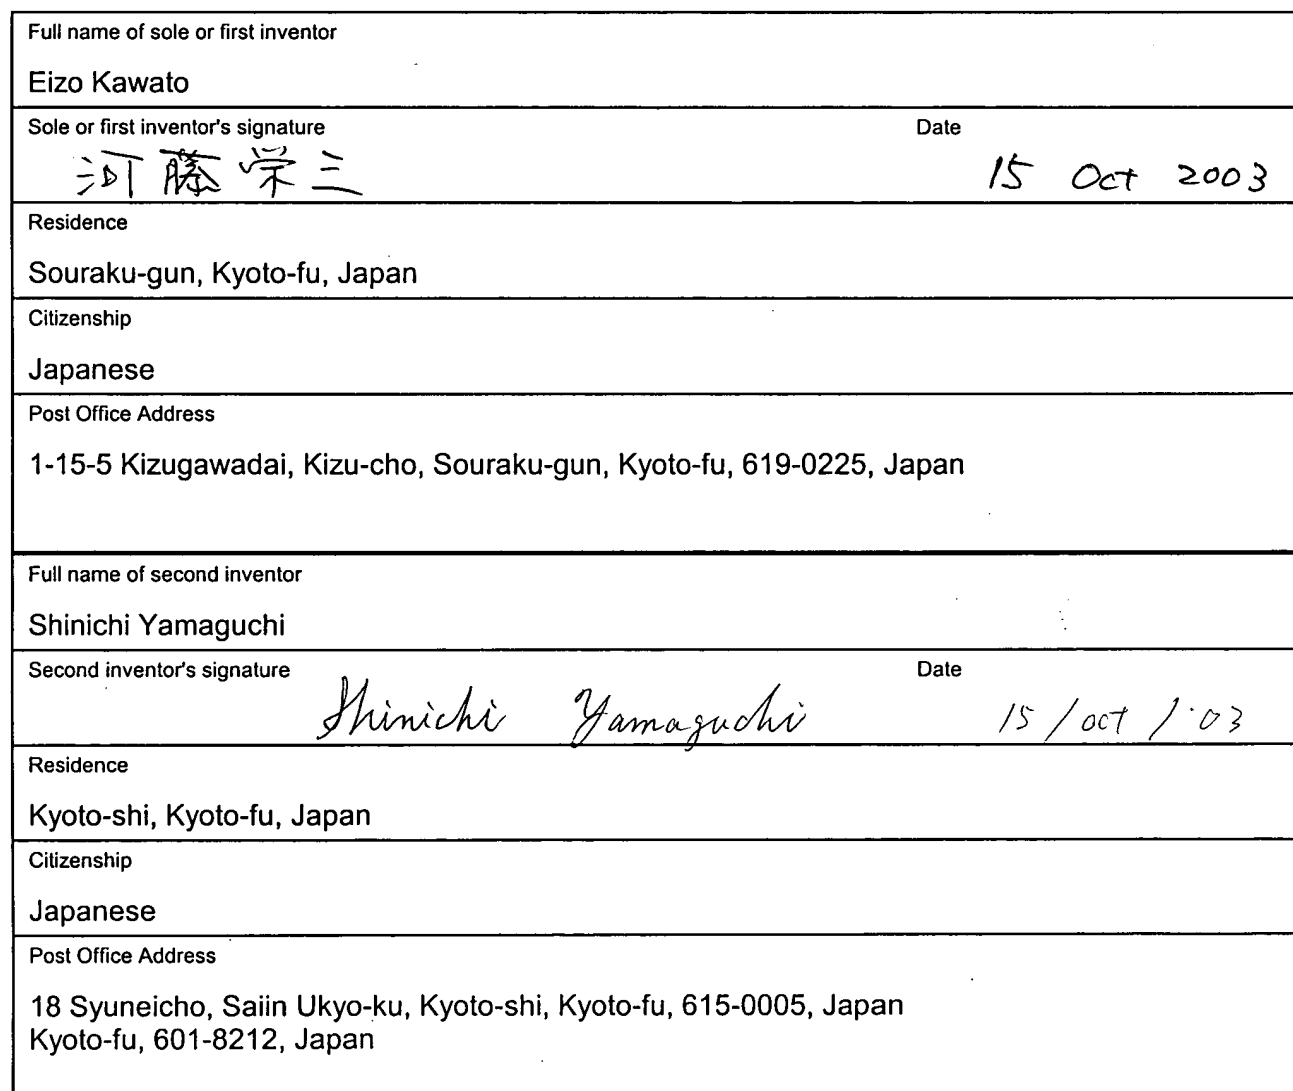 Full name of sole or first inventor
Eizo Kawato
Sole or first inventor's signature Date
河藤栄三 15 Oct 2003
Residence
Souraku-gun, Kyoto-fu, Japan
Citizenship
Japanese
Post Office Address
1-15-5 Kizugawadai, Kizu-cho, Souraku-gun, Kyoto-fu, 619-0225, Japan
Full name of second inventor
Shinichi Yamaguchi
Second inventor's signature Date
Shinichi Yamaguchi 15/oct/'03
Residence
Kyoto-shi, Kyoto-fu, Japan
Citizenship
Japanese
Post Office Address
18 Syuneicho, Saiin Ukyo-ku, Kyoto-shi, Kyoto-fu, 615-0005, Japan
Kyoto-fu, 601-8212, Japan